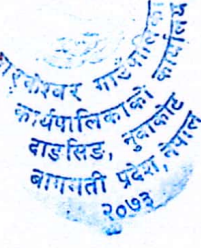 गाउँपालिका
कार्यपालिकाको कार्यालय
दाङसिङ, नुवाकोट
बागमती प्रदेश, नेपाल
२०७३